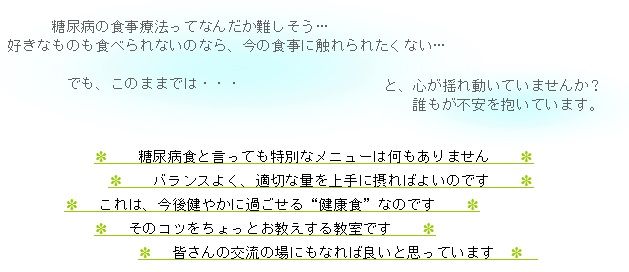 糖尿病の食事療法ってなんだか難しそう…
好きなものも食べられないのなら、今の食事に触れられたくない…
でも、このままでは・・・
と、心が揺れ動いていませんか？
誰もが不安を抱いています。
✼ 糖尿病食と言っても特別なメニューは何もありません ✼
✼ バランスよく、適切な量を上手に摂ればよいのです ✼
✼ これは、今後健やかに過ごせる“健康食”なのです ✼
✼ そのコツをちょっとお教えする教室です ✼
✼ 皆さんの交流の場にもなれば良いと思っています ✼